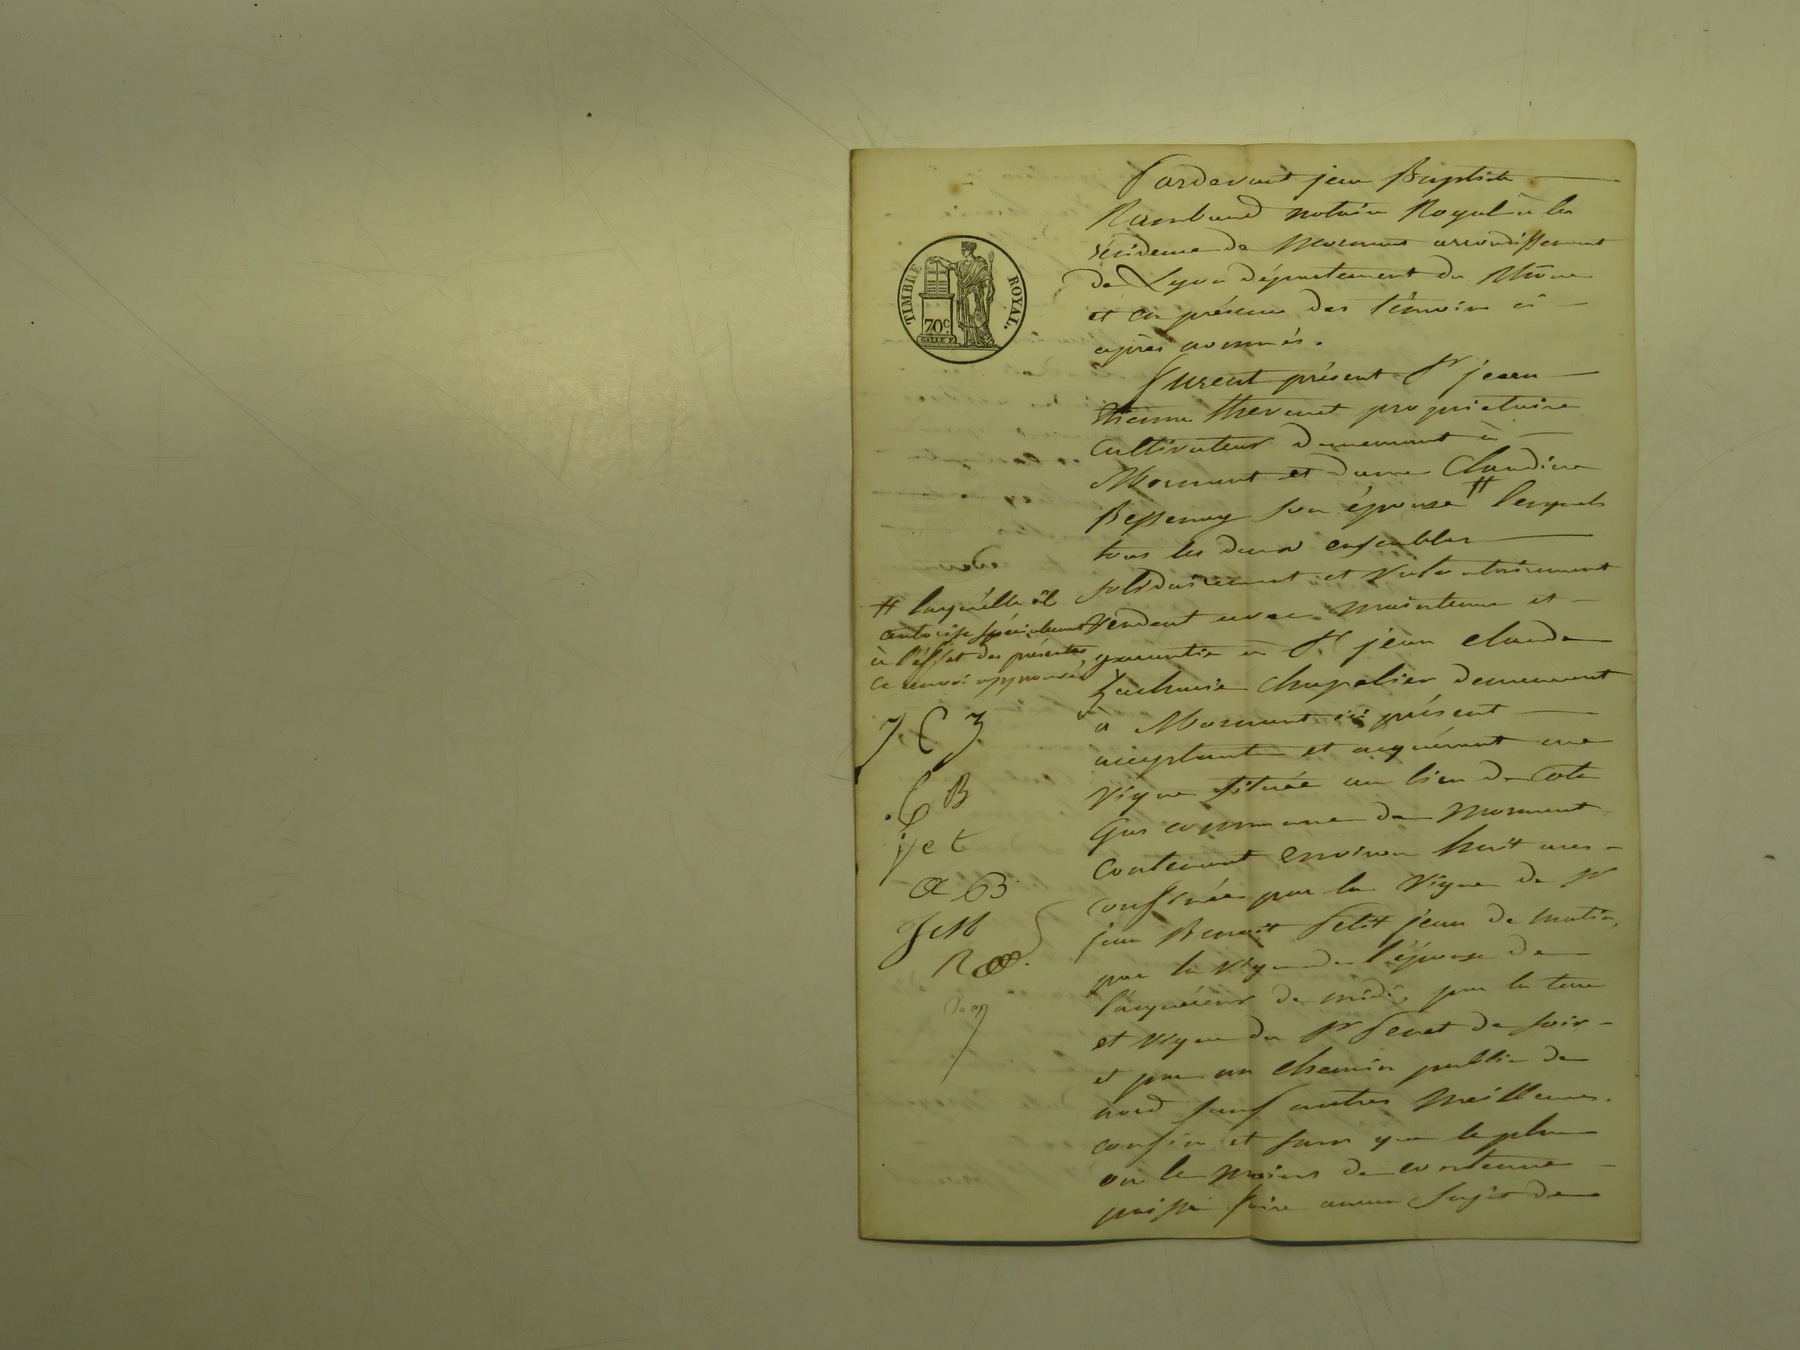 TIMBRE ROYAL.
70c.
GALLE F.
Pardevant jean Baptiste
Rambaud notaire Royal à la
résidence de Mornant arrondissement
de Lyon département du Rhône
et en présence des témoins ci
après nommés.
Furent présent Sr jean
Etienne thevenet propriétaire
cultivateur demeurant à
Mornant et dame Claudine
Bessenay son épouse # lesquels
tous les deux ensembles
solidairement et volontairement
vendent avec maintenue et
garantie à Sr jean claude
Zacharie chapelier demeurant
a Mornant ici présent
acceptant et acquérant une
vigne située au lieu de Cote
Gras commune de Mornant
contenant environ huit ares
confinée par la vigne de Sr
jean Benoit Petit jean de matin,
par la vigne de l'épouse de
l'acquéreur de midi, par la terre
et vigne du Sr de soir
et par un chemin public de
nord sauf autres meilleurs
confin et sans que le plus
ou le moins de contenue
puisse faire aucun sujet de
# laquelle il
autorise spécialement
à l'effet des présentes,
ce renvoi approuvé
J C Z
C B
j e t
a B
R